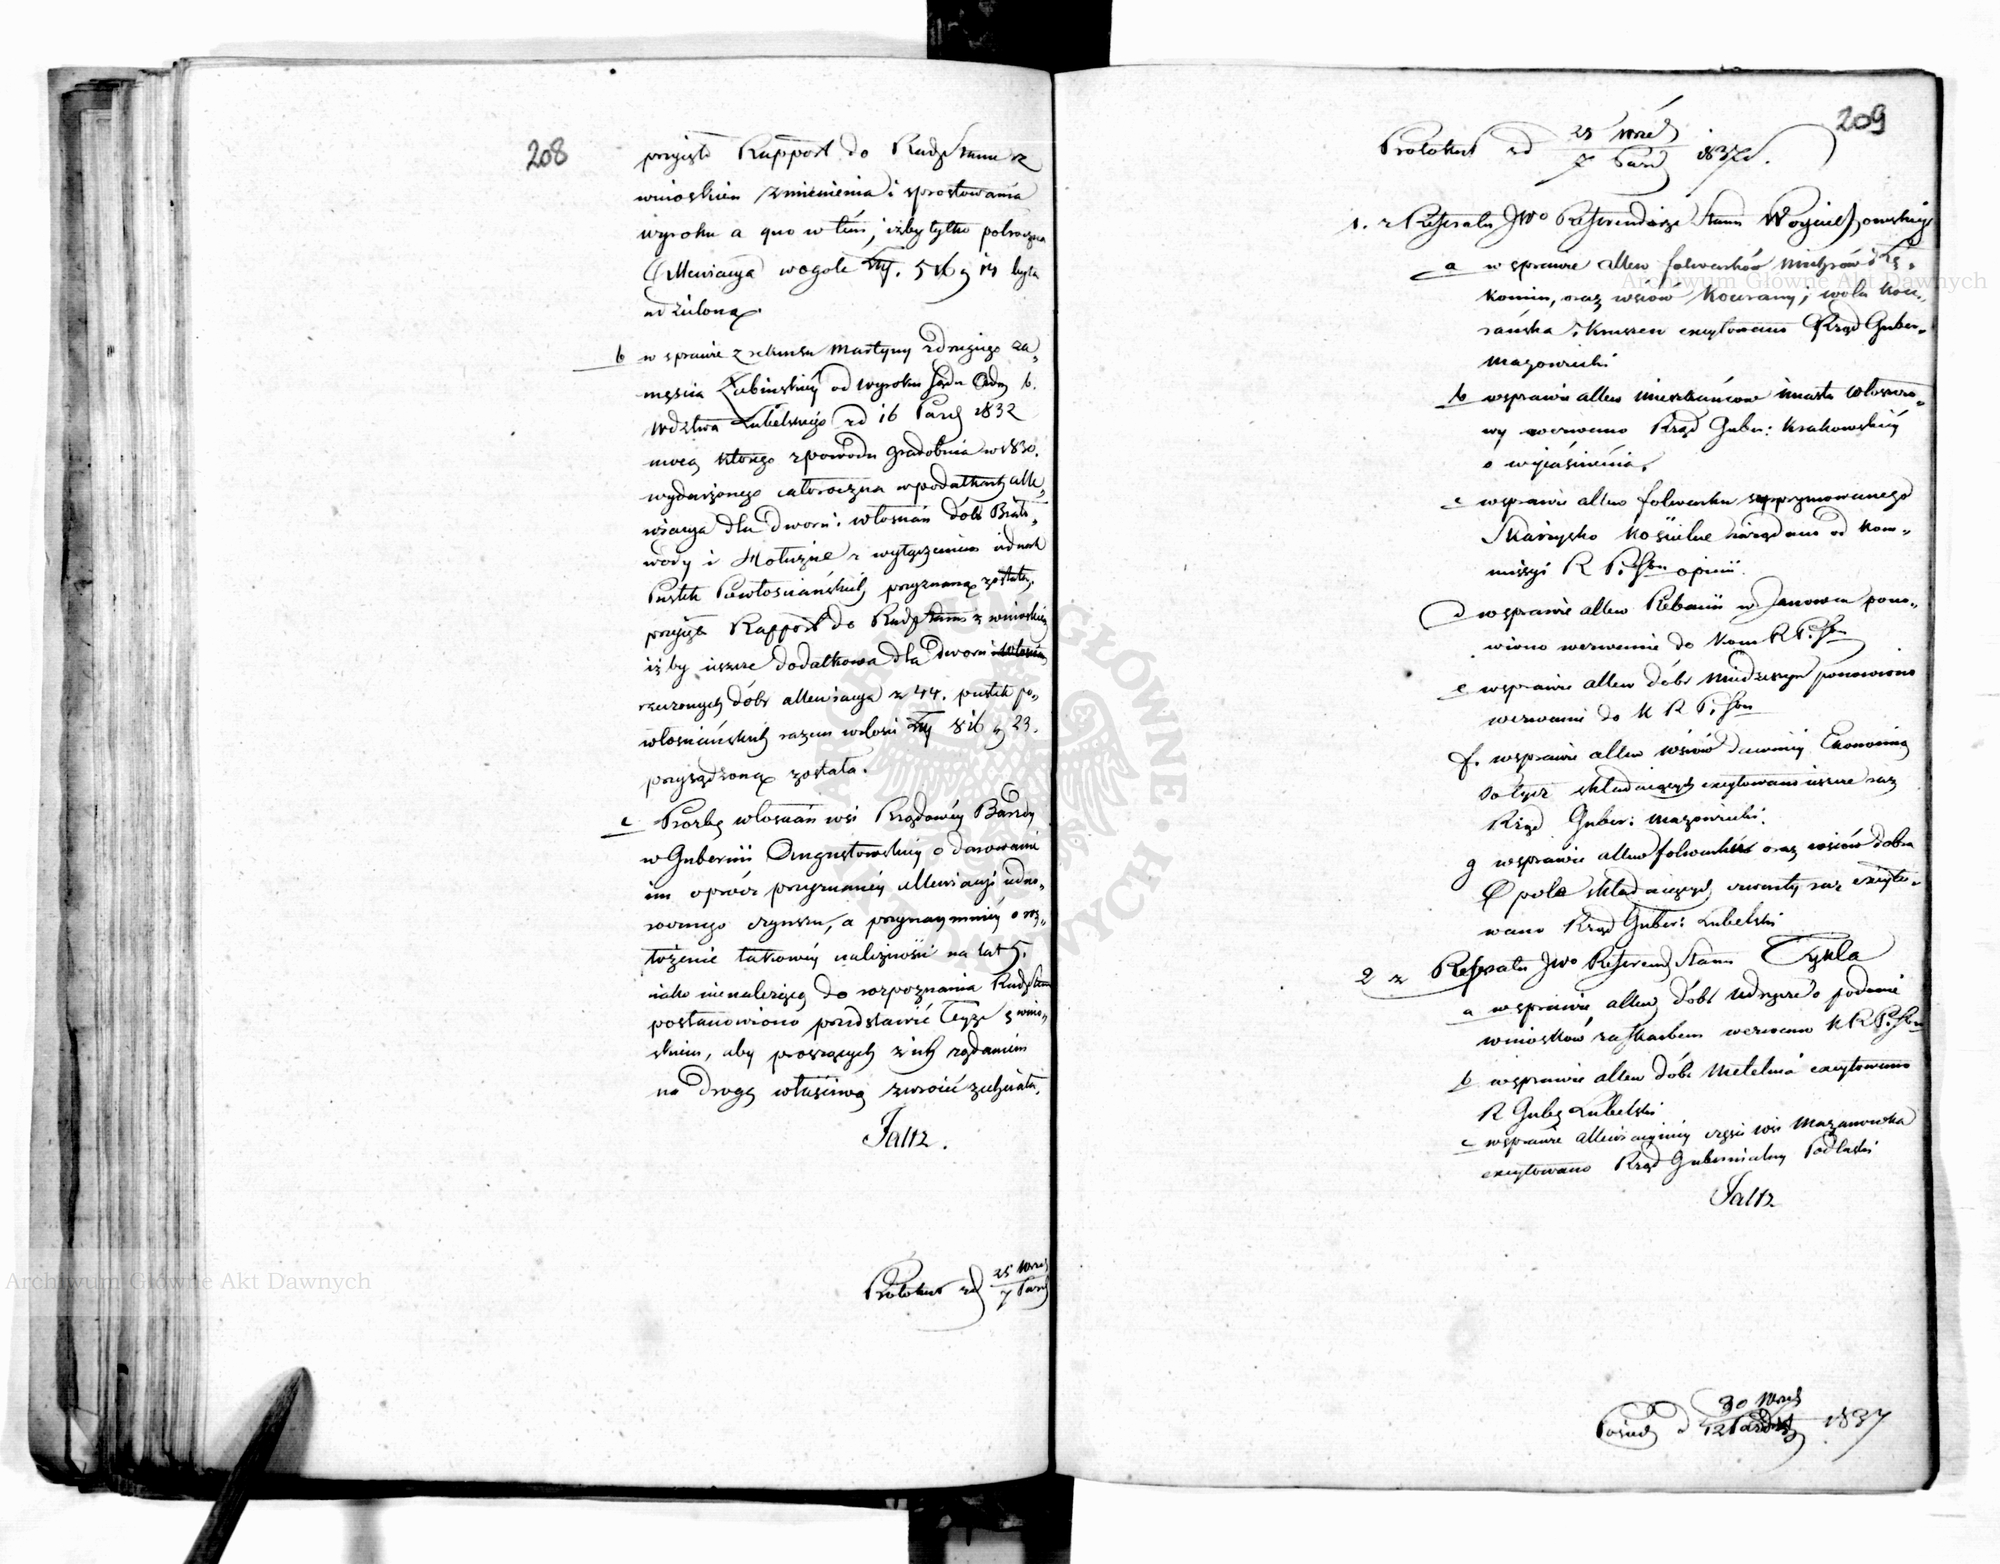 208
przyięto Rapport do Rady Stanu z
wnioskiem zmienienia i sprostowania
wyroku a quo w tém, iżby tylko półroczna
Allewiacya wogóle Złp. 516 g 14 była
udzieloną.
b w sprawie z rekursu Martyny 2 drugiego za„
męścia Łubieńskiéy od wyroku Sądu Adm b.
Wdztwa Lubelskiego zd 16 Paźd 1832
mocą którego z powodu gradobicia w 1830.
wydarzonego całoroczna w podatkach alle„
wiacya dla dworu i włościan dóbr Biało„
wody i z wyłączeniem iednak
Pustek Powłościańskich przyznaną została,
przyięto Rapport do Rady Stanu z wnioskiem
iżby ieszcze dodatkowa dla dworu
rzeczonych dóbr allewiacya z 44. pustek po„
włościańskich razem w ilości Złp 816 g 23.
przysądzoną została.
c Prośbę włościan wsi Rządowéy Barsdy
w Gubernii Augustowskiéy o darowanie
im oprócz przyznanéy allewiacyi iedno„
rocznego czynszu, a przynaymniéy o roz„
łożenie takowéy należności na lat 5.
iako nienależącą do rozpoznania Rady Stanu
postanowiono przedstawić Teyże z wnio„
skiem, aby proszących z ich żądaniem
na drogę właściwą zwrócić zechciała.
Faltz.
Protokuł zd 25 Wrześ / 7 Paźd
209
Protokuł zd 25 Wrześ / 7 Paźd 1837 r.
1. z Referatu JWo Referendarza Stanu Woyciechowskiego
a w sprawie allew folwarków i
oraz wsiów Kowrany, Wola Kow„
rańska i Kruszew excytowano Rząd Guber„
Mazowiecki
b w sprawie allew mieszkańców miasta Włoszczo„
wy wezwano Rząd Guber: Krakowskiéy
o wyiaśnienia.
c w sprawie allew folwarku supprymowanego
Skarżysko Kościelne zażądano od Kom„
missyi R P. i Skar opinii.
d w sprawie allew Plebanii w Janowcu pono„
wiono wezwanie do Kom R P. i Skar
e w sprawie allew dóbr Miedzeszyn ponowiono
wezwanie do K R P. i Skar
f. w sprawie allew wsiów dawniéy Ekonomią
składaiących excytowano ieszcze raz
Rząd Guber: Mazowiecki.
g w sprawie allew folwarków oraz wsiów dobra
Opole składaiących czwarty raz excyto„
wano Rząd Guber: Lubelski
2 z Referatu JWo Referend Stanu Cykla
a w sprawie allew dóbr Udrycze o podanie
wniosków za Skarbem wezwano K R P. i Skar
b w sprawie allew dóbr Metelina excytowano
R Guber Lubelski
c w sprawie allewiacyinéy części wsi Mazanowka
excytowano Rząd Gubernialny Podlaski
Faltz
Posiedz d 30 Wrześ / 12 Paźdz 1837
Archiwum Główne Akt Dawnych
Archiwum Główne Akt Dawnych